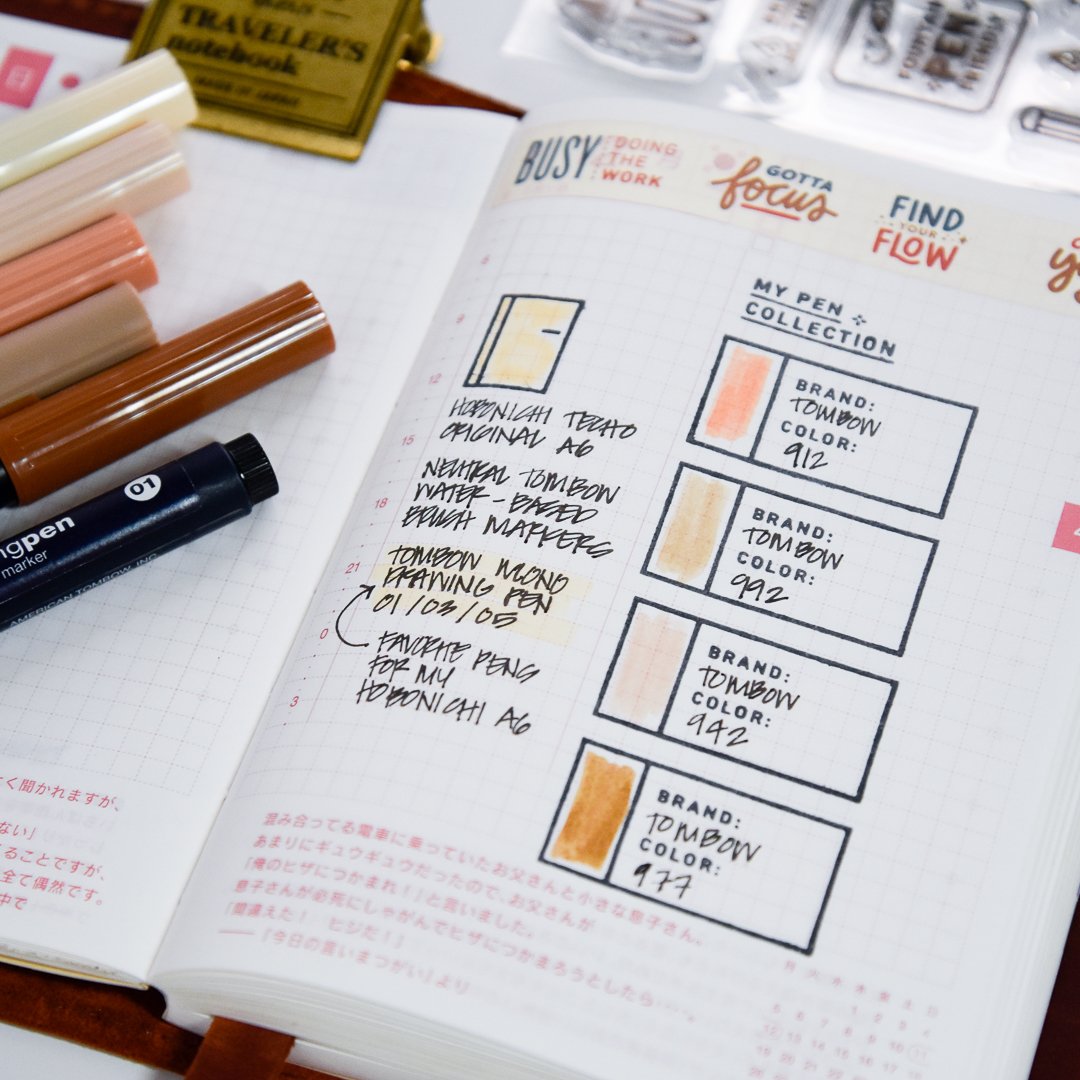 TRAVELER'S
notebook
日
BUSY DOING THE WORK
GOTTA
focus
FIND
YOUR
FLOW
MY PEN
COLLECTION
9
12
15
18
21
0
3
HOBONICHI TECHO
ORIGINAL A6
NEUTRAL TOMBOW
WATER-BASED
BRUSH MARKERS
TOMBOW MONO
DRAWING PEN
01/03/05
FAVORITE PENS
FOR MY
HOBONICHI A6
BRAND:
TOMBOW
COLOR:
912
BRAND:
TOMBOW
COLOR:
992
BRAND:
TOMBOW
COLOR:
942
BRAND:
TOMBOW
COLOR:
977
01
ngpen
marker
AMERICAN TOMBOW, INC.
く聞かれますが、
ない」
ることですが、
全て偶然です。
中で
混み合ってる電車に乗っていたお父さんと小さな息子さん。
あまりにギュウギュウだったので、お父さんが
「俺のヒザにつかまれ！」と言いました。
息子さんが必死にしゃがんでヒザにつかまろうとしたら……、
「間違えた！　ヒジだ！」
——「今日の言いまつがい」より
月 火 水 木 金 土 日
1 2 3 4
5 6 7 8 9 10 11
12 13 14 15 16 17 18